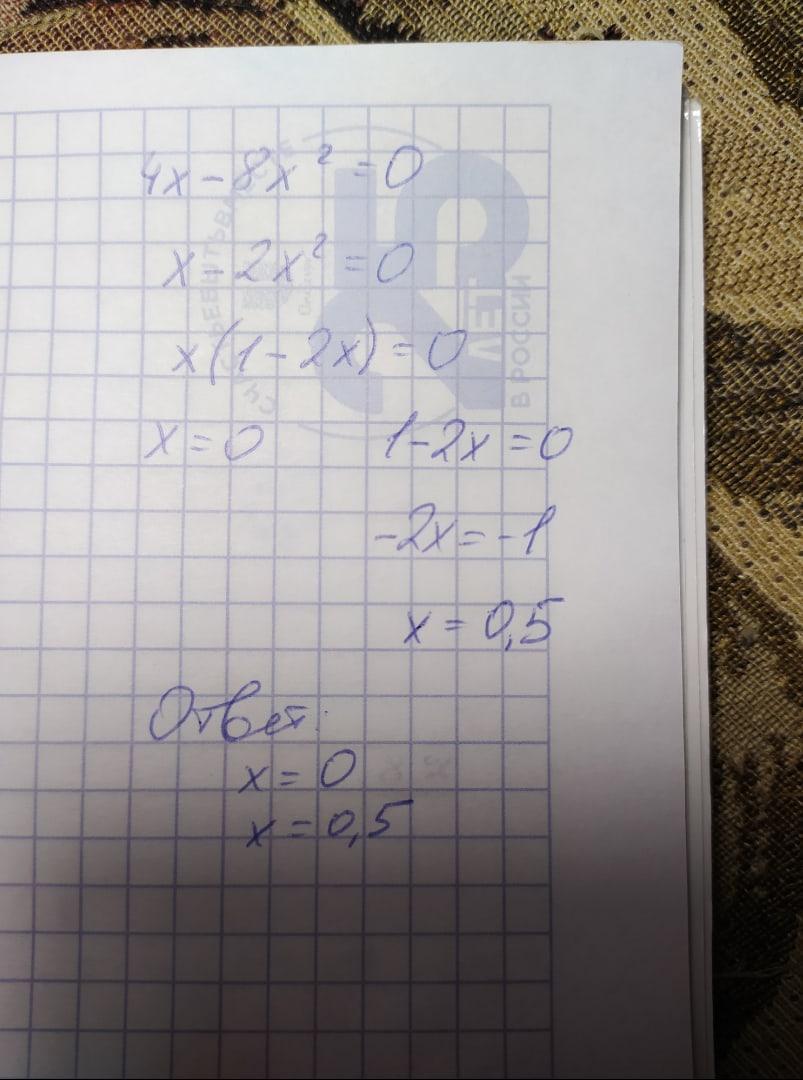 4x - 8x² = 0
x - 2x² = 0
x(1 - 2x) = 0
x = 0 1 - 2x = 0
-2x = -1
x = 0,5
Ответ:
x = 0
x = 0,5
В РОССИИ